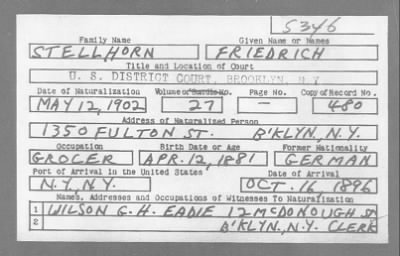 S346
Family Name Given Name or Names
STELLHORN FRIEDRICH
Title and Location of Court
U. S. DISTRICT COURT, BROOKLYN, N Y
Date of Naturalization Volume or Bundle No. Page No. Copy of Record No.
MAY 12, 1902 27 — 480
Address of Naturalized Person
1350 FULTON ST. B'KLYN, N.Y.
Occupation Birth Date or Age Former Nationality
GROCER APR. 12, 1881 GERMAN
Port of Arrival in the United States Date of Arrival
N.Y., N.Y. OCT. 16, 1896
Names, Addresses and Occupations of Witnesses To Naturalization
1 WILSON G. H. EADIE 12 McDONOUGH ST
2 B'KLYN., N.Y. CLERK